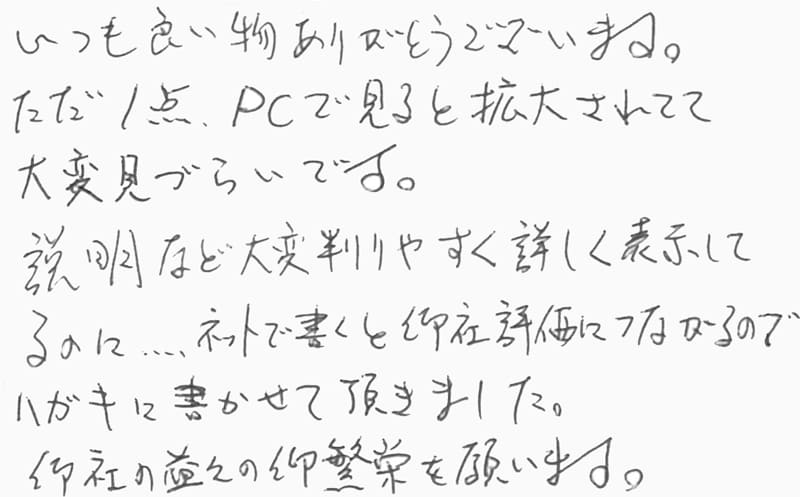 いつも良い物ありがとうございます。
ただ1点、PCで見ると拡大されてて
大変見づらいです。
説明など大変判りやすく詳しく表示して
るのに....ネットで書くと御社評価につながるので
ハガキに書かせて頂きました。
御社の益々の御繁栄を願います。